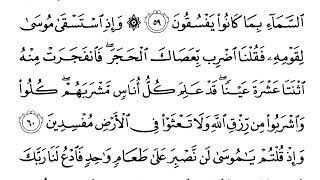 ٱلسَّمَآءِ بِمَا كَانُوا۟ يَفْسُقُونَ ٥٩ ۞ وَإِذِ ٱسْتَسْقَىٰ مُوسَىٰ
لِقَوْمِهِۦ فَقُلْنَا ٱضْرِب بِّعَصَاكَ ٱلْحَجَرَ ۖ فَٱنفَجَرَتْ مِنْهُ
ٱثْنَتَا عَشْرَةَ عَيْنًا ۖ قَدْ عَلِمَ كُلُّ أُنَاسٍ مَّشْرَبَهُمْ ۖ كُلُوا۟
وَٱشْرَبُوا۟ مِن رِّزْقِ ٱللَّهِ وَلَا تَعْثَوْا۟ فِى ٱلْأَرْضِ مُفْسِدِينَ ٦٠
وَإِذْ قُلْتُمْ يَـٰمُوسَىٰ لَن نَّصْبِرَ عَلَىٰ طَعَامٍ وَٰحِدٍ فَٱدْعُ لَنَا رَبَّكَ